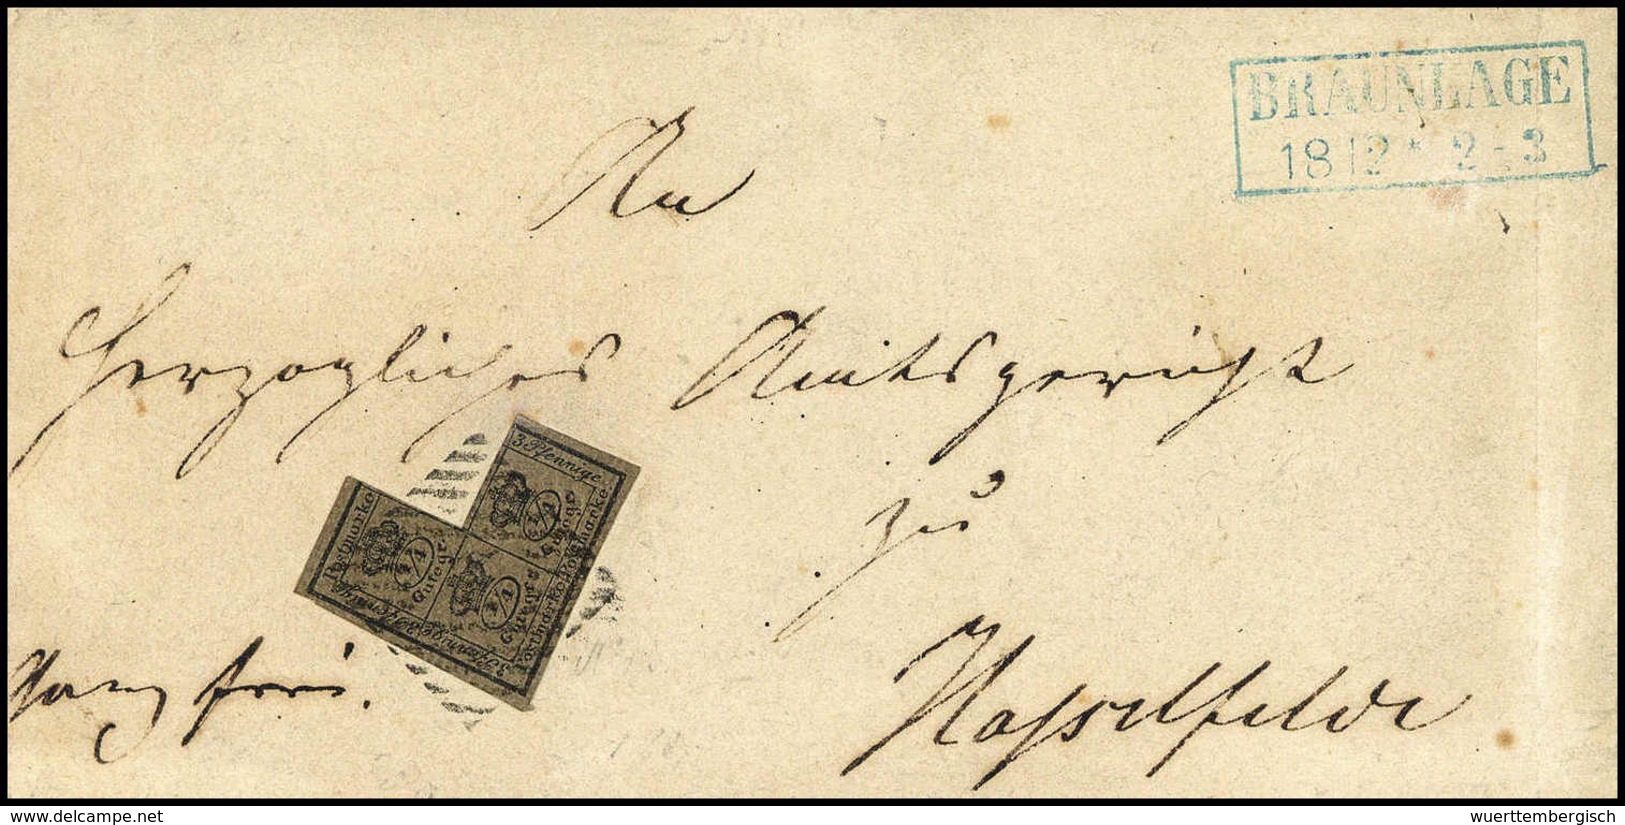 BRAUNLAGE
18 12 * 2 - 3
An
Herzogliches Amtsgericht
zu
Hasselfelde
Ganz frei.
3 Pfennige
1/4
Gutegr
Postmarke
1/4
Gutegr
1/4
Gutegr
3 Pfennige
delcampe.net
wuerttembergisch